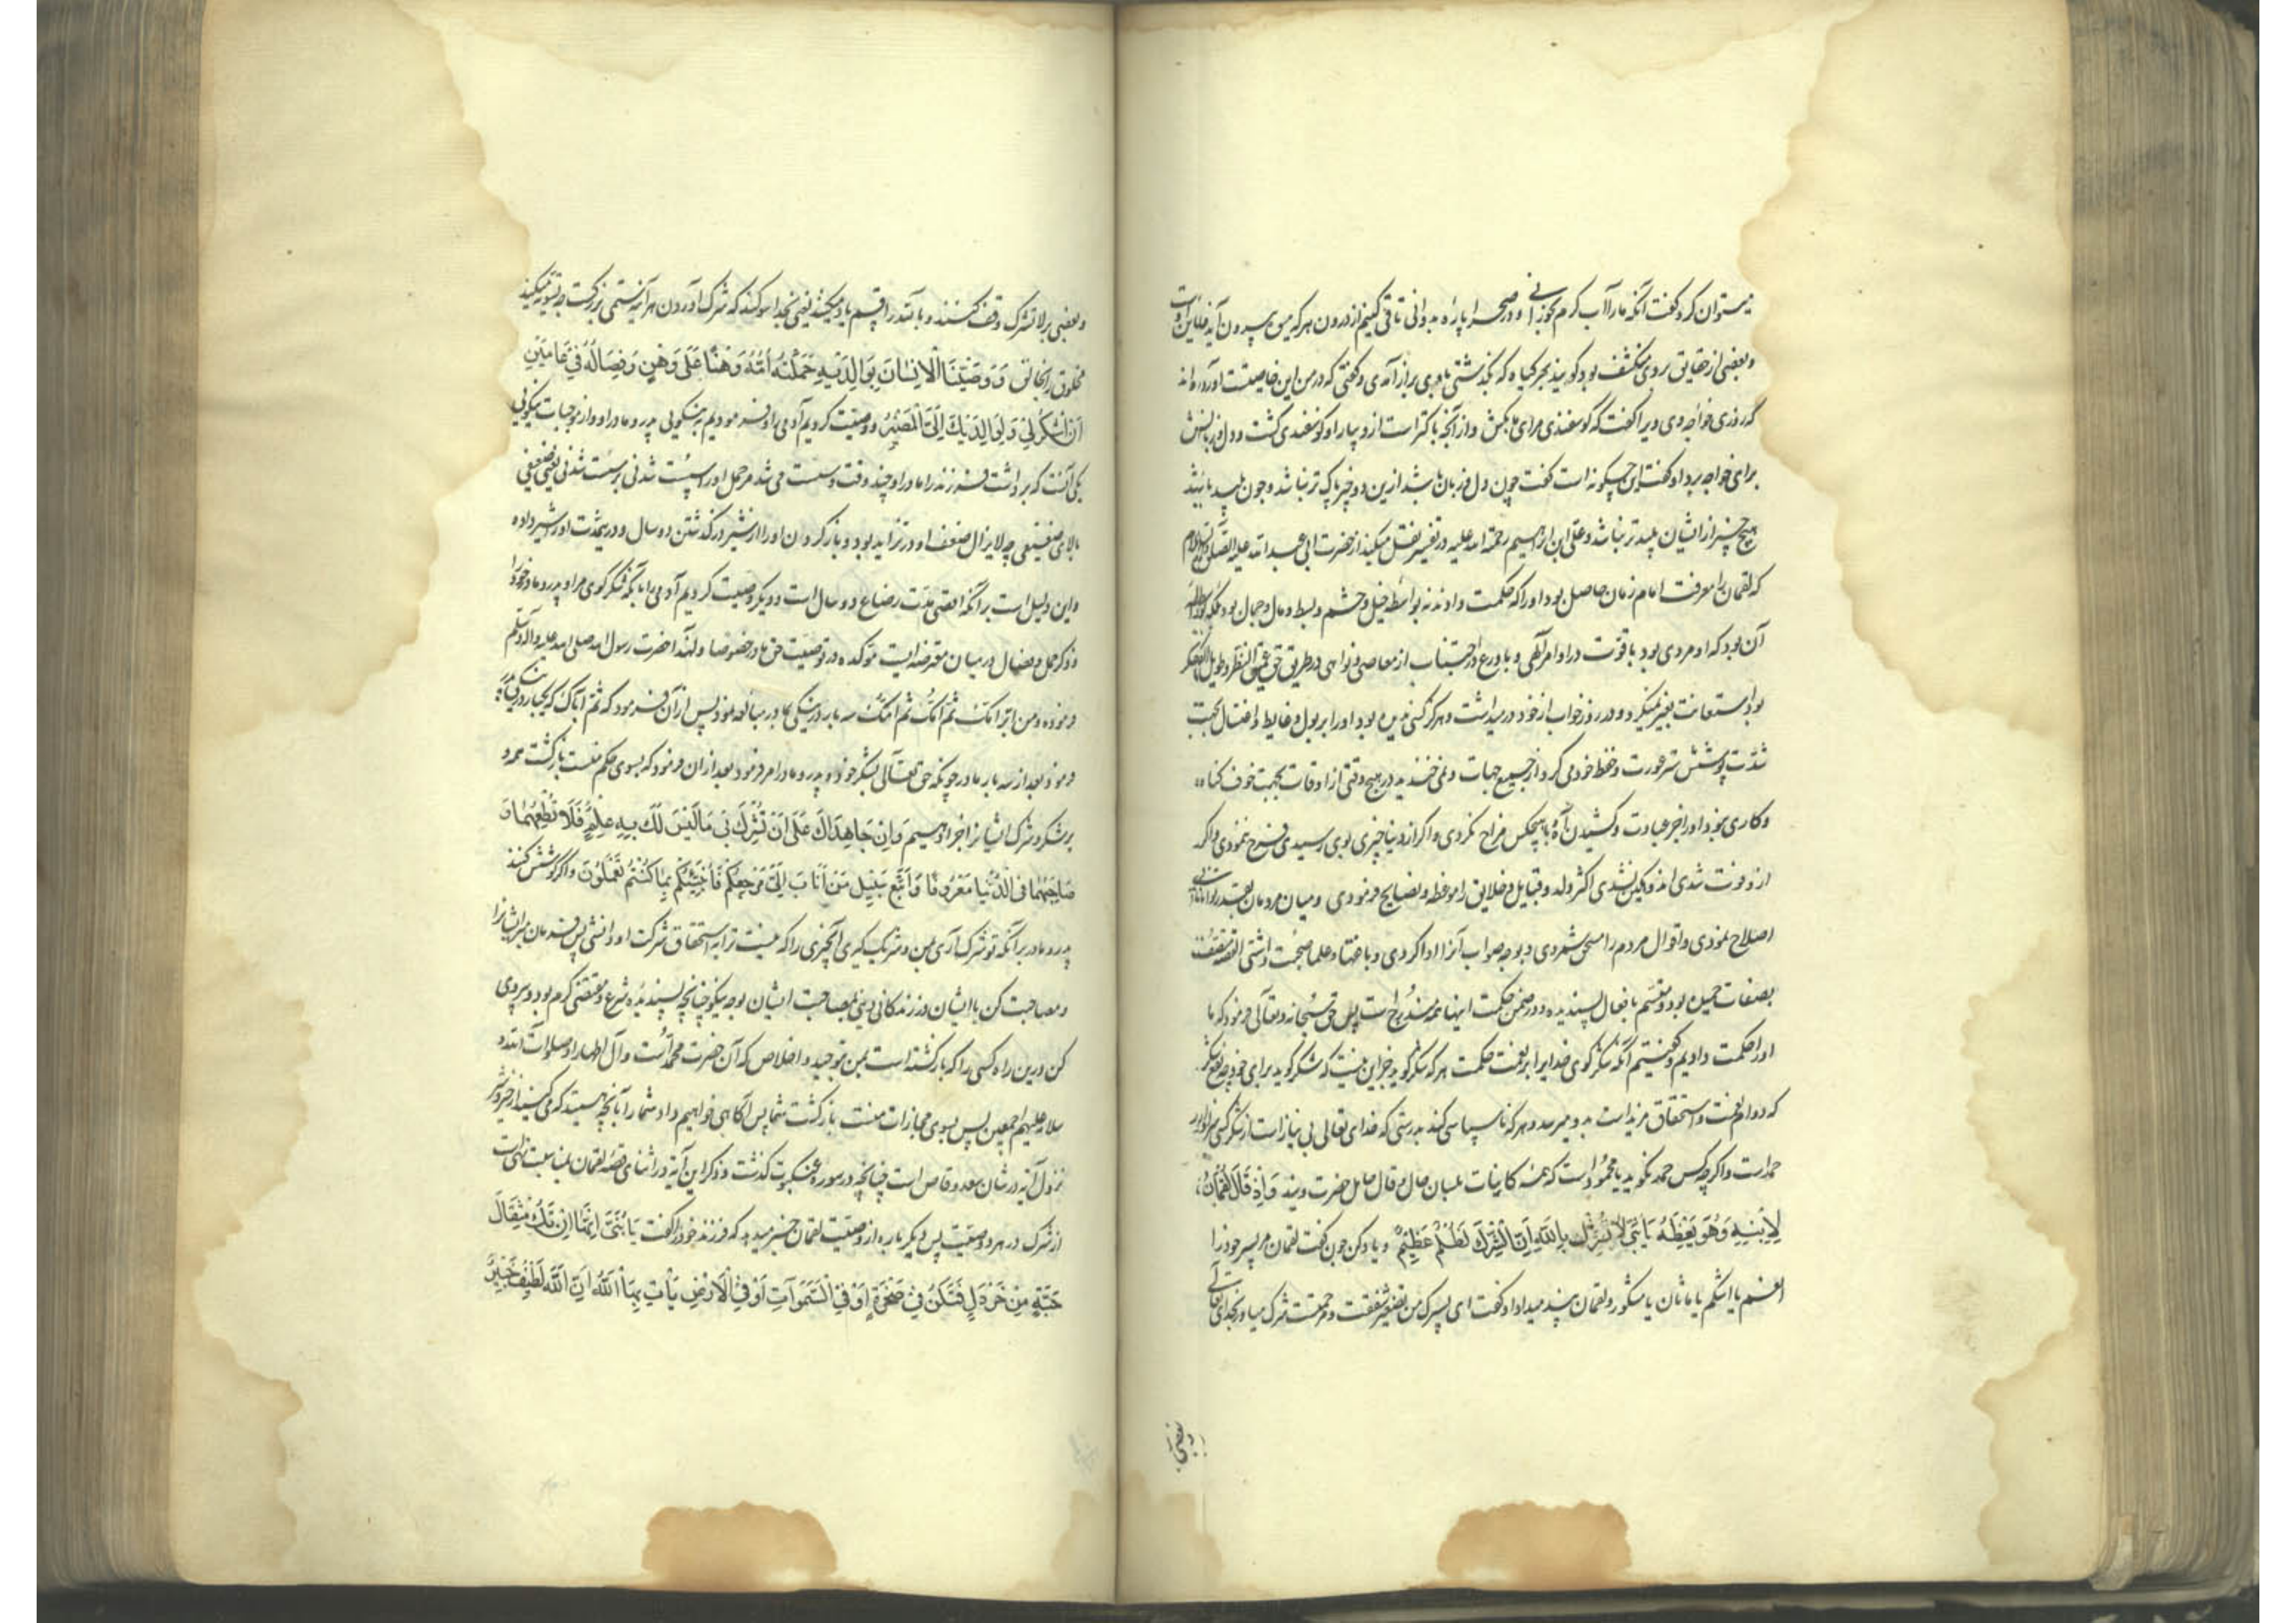 میتوان کرد گفت آنکه ما را آب گرم بخورانی و در صحرا پاره بدوانی تا قی کنیم از درون هر که میوه بیرون آید خاین اوست
و بعضی از حقایق بر وی منکشف بود گویند بهر گیاه که بگذشتی باوی براز آمدی و گفتی که در من این خاصیت است آورده اند
که روزی خواجه وی ویرا گفت که گوسفندی برای ما بکش و از آنچه پاکتر است ازو بیار او گوسفندی کشت و دل و زبانش
برای خواجه برد او گفت این چگونه است گفت چون دل و زبان پاک باشد ازین دو چیز پاک تر نباشد و چون پلید باشد
هیچ چیز از ایشان پلید تر نباشد و علی ابن ابراهیم رحمة الله علیه در تفسیر نقل میکند از حضرت ابی عبد الله علیه الصلوة والسلام
که لقمان را معرفت امام زمان حاصل بود او را که حکمت دادند نه بواسطه خیل و حشم و بسط و مال و جمال بود بلکه
آن بود که او مردی بود با قوت در اوامر آلهی و با ورع و اجتناب از معاصی و نواهی در طریق حق عمیق النظر و طویل الفکر
بود استعانت بغیر نمیکرد و در روز خواب از خود دور میداشت و هرگز کسی ندیده بود او را بر بول و غایط و اغتسال بجهت
شدت پوشش ستر عورت و حفظ خود می کرد از جمیع جهات و نمی خندید در هیچ وقتی از اوقات بجهت خوف گناه
و کاری نبود او را جز عبادت و کشیدن آه با هیچکس مزاح نکردی و اگر از دنیا چیزی بوی رسیدی فرح ننمودی و اگر
ازو فوت شدی اندوهگین نشدی اکثر ولد و قبایل و خلایق را موعظه و نصایح فرمودی و میان مردمان بقدر توانائی
اصلاح نمودی و اقوال مردم را شمردی و بوجه صواب آنرا ادا کردی و با علما صحبت داشتی القصه متصف
بصفات حمیده بود و متسم بافعال پسندیده و در ضمن حکمت اینها همه مندرج است پس حق سبحانه و تعالی فرمود که ما
او را حکمت دادیم و گفتیم آنکه شکر گوی خدایرا بر نعمت حکمت هر که شکر گوید جز این نیست که شکر گوید برای خود چه نفع شکر
که دوام نعمت و استحقاق مزید است بدو میرسد و هر که ناسپاسی کند بدرستی که خدای تعالی بی نیاز است از شکر کسی سزاوار
حمد است و اگر چه کس حمد نگوید یا محمود است که همه کاینات بلسان حال و قال حامل حضرت ویند وَاِذْ قَالَ لُقْمَانُ
لِاِبْنِهِ وَهُوَ يَعِظُهُ يَابُنَيَّ لَا تُشْرِكْ بِاللّٰهِ اِنَّ الشِّرْكَ لَظُلْمٌ عَظِيْمٌ و یاد کن چون گفت لقمان مر پسر خود را
انعم یا اشکم یا ماثان یا مشکور و لقمان پند میداد او گفت ای پسرک من تصغیر شفقت و مرحمت شرک میاور بخدای تعالی
وبعضی بر
وبعضی بر لا تشرک وقف کنند و با لله را قسم یاد میکنند یعنی بخدا سوگند که شرک آوردن هر آینه ستمی بزرگست چه تسویه میکند
مخلوق را بخالق وَوَصَّيْنَا الْاِنْسَانَ بِوَالِدَيْهِ حَمَلَتْهُ اُمُّهُ وَهْنًا عَلَى وَهْنٍ وَفِصَالُهُ فِيْ عَامَيْنِ
اَنِ اشْكُرْلِيْ وَلِوَالِدَيْكَ اِلَيَّ الْمَصِيْرُ و وصیت کردیم آدمی را و فرمودیم به نیکویی پدر و مادر او و از موجبات نیکوئی
یکی آنست که برداشت فرزند را مادر او چند وقت و سست می شد مر حمل او را سست شدنی بر سست شدنی یعنی ضعیفی
بالای ضعیفی چه لایزال ضعف او در تزاید بود و باز کردن او را از شیر در گذشتن دو سال و در ینمدت او را شیر داده
و این دلیل است بر آنکه اقصی مدت رضاع دو سال است و دیگر وصیت کردیم آدمی را بآنکه شکر گوی مرا و پدر و مادر خود را
و ذکر حمل و فصال در میان معترضه ایست مؤکده در توصیت حق مادر خصوصا و لهذا حضرت رسول الله صلی الله علیه و آله وسلم
فرموده و من ابر امک ثم امک ثم امک سه بار در نیکی مادر مبالغه نمود پس از آن فرمود که ثم اباک که یکبار در نیکی پدر
فرمود بعد از سه بار مادر چونکه حق تعالی بشکر خود و پدر و مادر امر فرمود بعد از ان فرمود که بسوی حکم منست بازگشت همه و
بر شکر و شرک ایشانرا جزا دهیم وَاِنْ جَاهَدَاكَ عَلَى اَنْ تُشْرِكَ بِيْ مَا لَيْسَ لَكَ بِهِ عِلْمٌ فَلَا تُطِعْهُمَا وَ
صَاحِبْهُمَا فِى الدُّنْيَا مَعْرُوْفًا وَاتَّبِعْ سَبِيْلَ مَنْ اَنَابَ اِلَيَّ ثُمَّ اِلَيَّ مَرْجِعُكُمْ فَاُنَبِّئُكُمْ بِمَا كُنْتُمْ تَعْمَلُوْنَ و اگر کوشش کنند
پدر و مادر بر آنکه تو شرک آری بمن و شریک گیری آنچیزی را که نیست ترا به استحقاق شرکت او دانشی پس فرمان مبر ایشانرا
و مصاحبت کن با ایشان در زندگانی دنیا مصاحبت ایشان بوجه نیکو چنانچه پسندیده شرع و مقتضی کرم بود و پیروی
کن در دین راه کسی را که بازگشته است بمن بتوحید و اخلاص که آن حضرت محمد است و آل اطهار او صلوات الله و
سلامه علیهم اجمعین پس بسوی مجازات منست بازگشت شما پس آگاهی خواهیم داد شما را بآنچه هستید که می کنید از خیر و شر
نزول آیه در شان سعد وقاص است چنانچه در سوره عنکبوت گذشت و ذکر این آیه در اثنای قصه لقمان بمناسبت نهی است
از شرک در هر دو وصیت پس دیگر باره از وصیت لقمان خبر میدهد که فرزند خود را گفت يَابُنَيَّ اِنَّهَا اِنْ تَكُ مِثْقَالَ
حَبَّةٍ مِنْ خَرْدَلٍ فَتَكُنْ فِيْ صَخْرَةٍ اَوْ فِيْ السَّمٰوَاتِ اَوْ فِيْ الْاَرْضِ يَأْتِ بِهَا اللّٰهُ اِنَّ اللّٰهَ لَطِيْفٌ خَبِيْرٌ